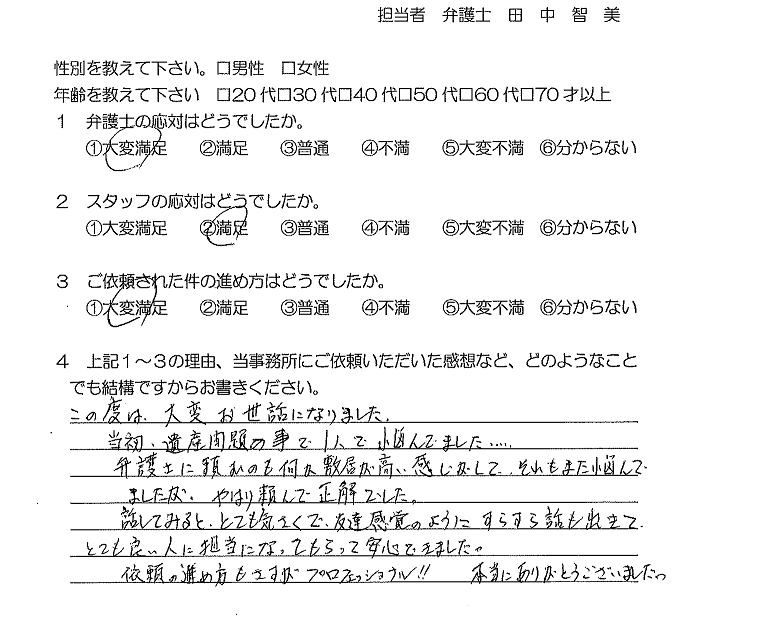 担当者　弁護士　田　中　智　美
性別を教えて下さい。□男性　□女性
年齢を教えて下さい　□20代□30代□40代□50代□60代□70才以上
１　弁護士の応対はどうでしたか。
①大変満足　②満足　③普通　④不満　⑤大変不満　⑥分からない
２　スタッフの応対はどうでしたか。
①大変満足　②満足　③普通　④不満　⑤大変不満　⑥分からない
３　ご依頼された件の進め方はどうでしたか。
①大変満足　②満足　③普通　④不満　⑤大変不満　⑥分からない
４　上記１～３の理由、当事務所にご依頼いただいた感想など、どのようなこと
でも結構ですからお書きください。
この度は、大変お世話になりました。
当初、遺産問題の事で1人で悩んでました….
弁護士に頼むのも何か敷居が高い感じがして、それもまた悩んで
ましたが、やはり頼んで正解でした。
話してみると、とても気さくで、友達感覚のように すらすら話も出きて、
とても良い人に担当になってもらって安心できました。
依頼の進め方もさすがプロフェッショナル!!　本当にありがとうございましたっ